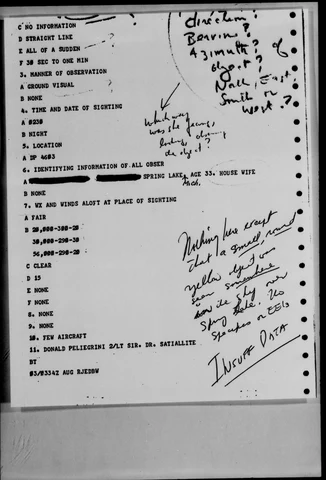 C NO INFORMATION
D STRAIGHT LINE
E ALL OF A SUDDEN
F 30 SEC TO ONE MIN
3. MANNER OF OBSERVATION
A GROUND VISUAL
B NONE
4. TIME AND DATE OF SIGHTING
A 0230
B NIGHT
5. LOCATION
A DP 4603
6. IDENTIFYING INFORMATION OF ALL OBSER
A SPRING LAKE, AGE 33. HOUSE WIFE
Mich.
B NONE
7. WX AND WINDS ALOFT AT PLACE OF SIGHTING
A FAIR
B 20,000-300-20
30,000-290-30
50,000-290-20
C CLEAR
D 15
E NONE
F NONE
8. NONE
9. NONE
10. FEW AIRCRAFT
11. DONALD PELLEGRINI 2/LT SIR. DR. SATIALLITE
BT
03/0334Z AUG RJEDBW
direction?
Bearing?
Azimuth? of
object?
North, East,
South or
West?
which way
was she facing,
looking during
the object?
Nothing here except
that a small, round
yellow object was
seen somewhere
in the sky over
Spring Lake. No
specifics or EEIs
INSUFF DATA